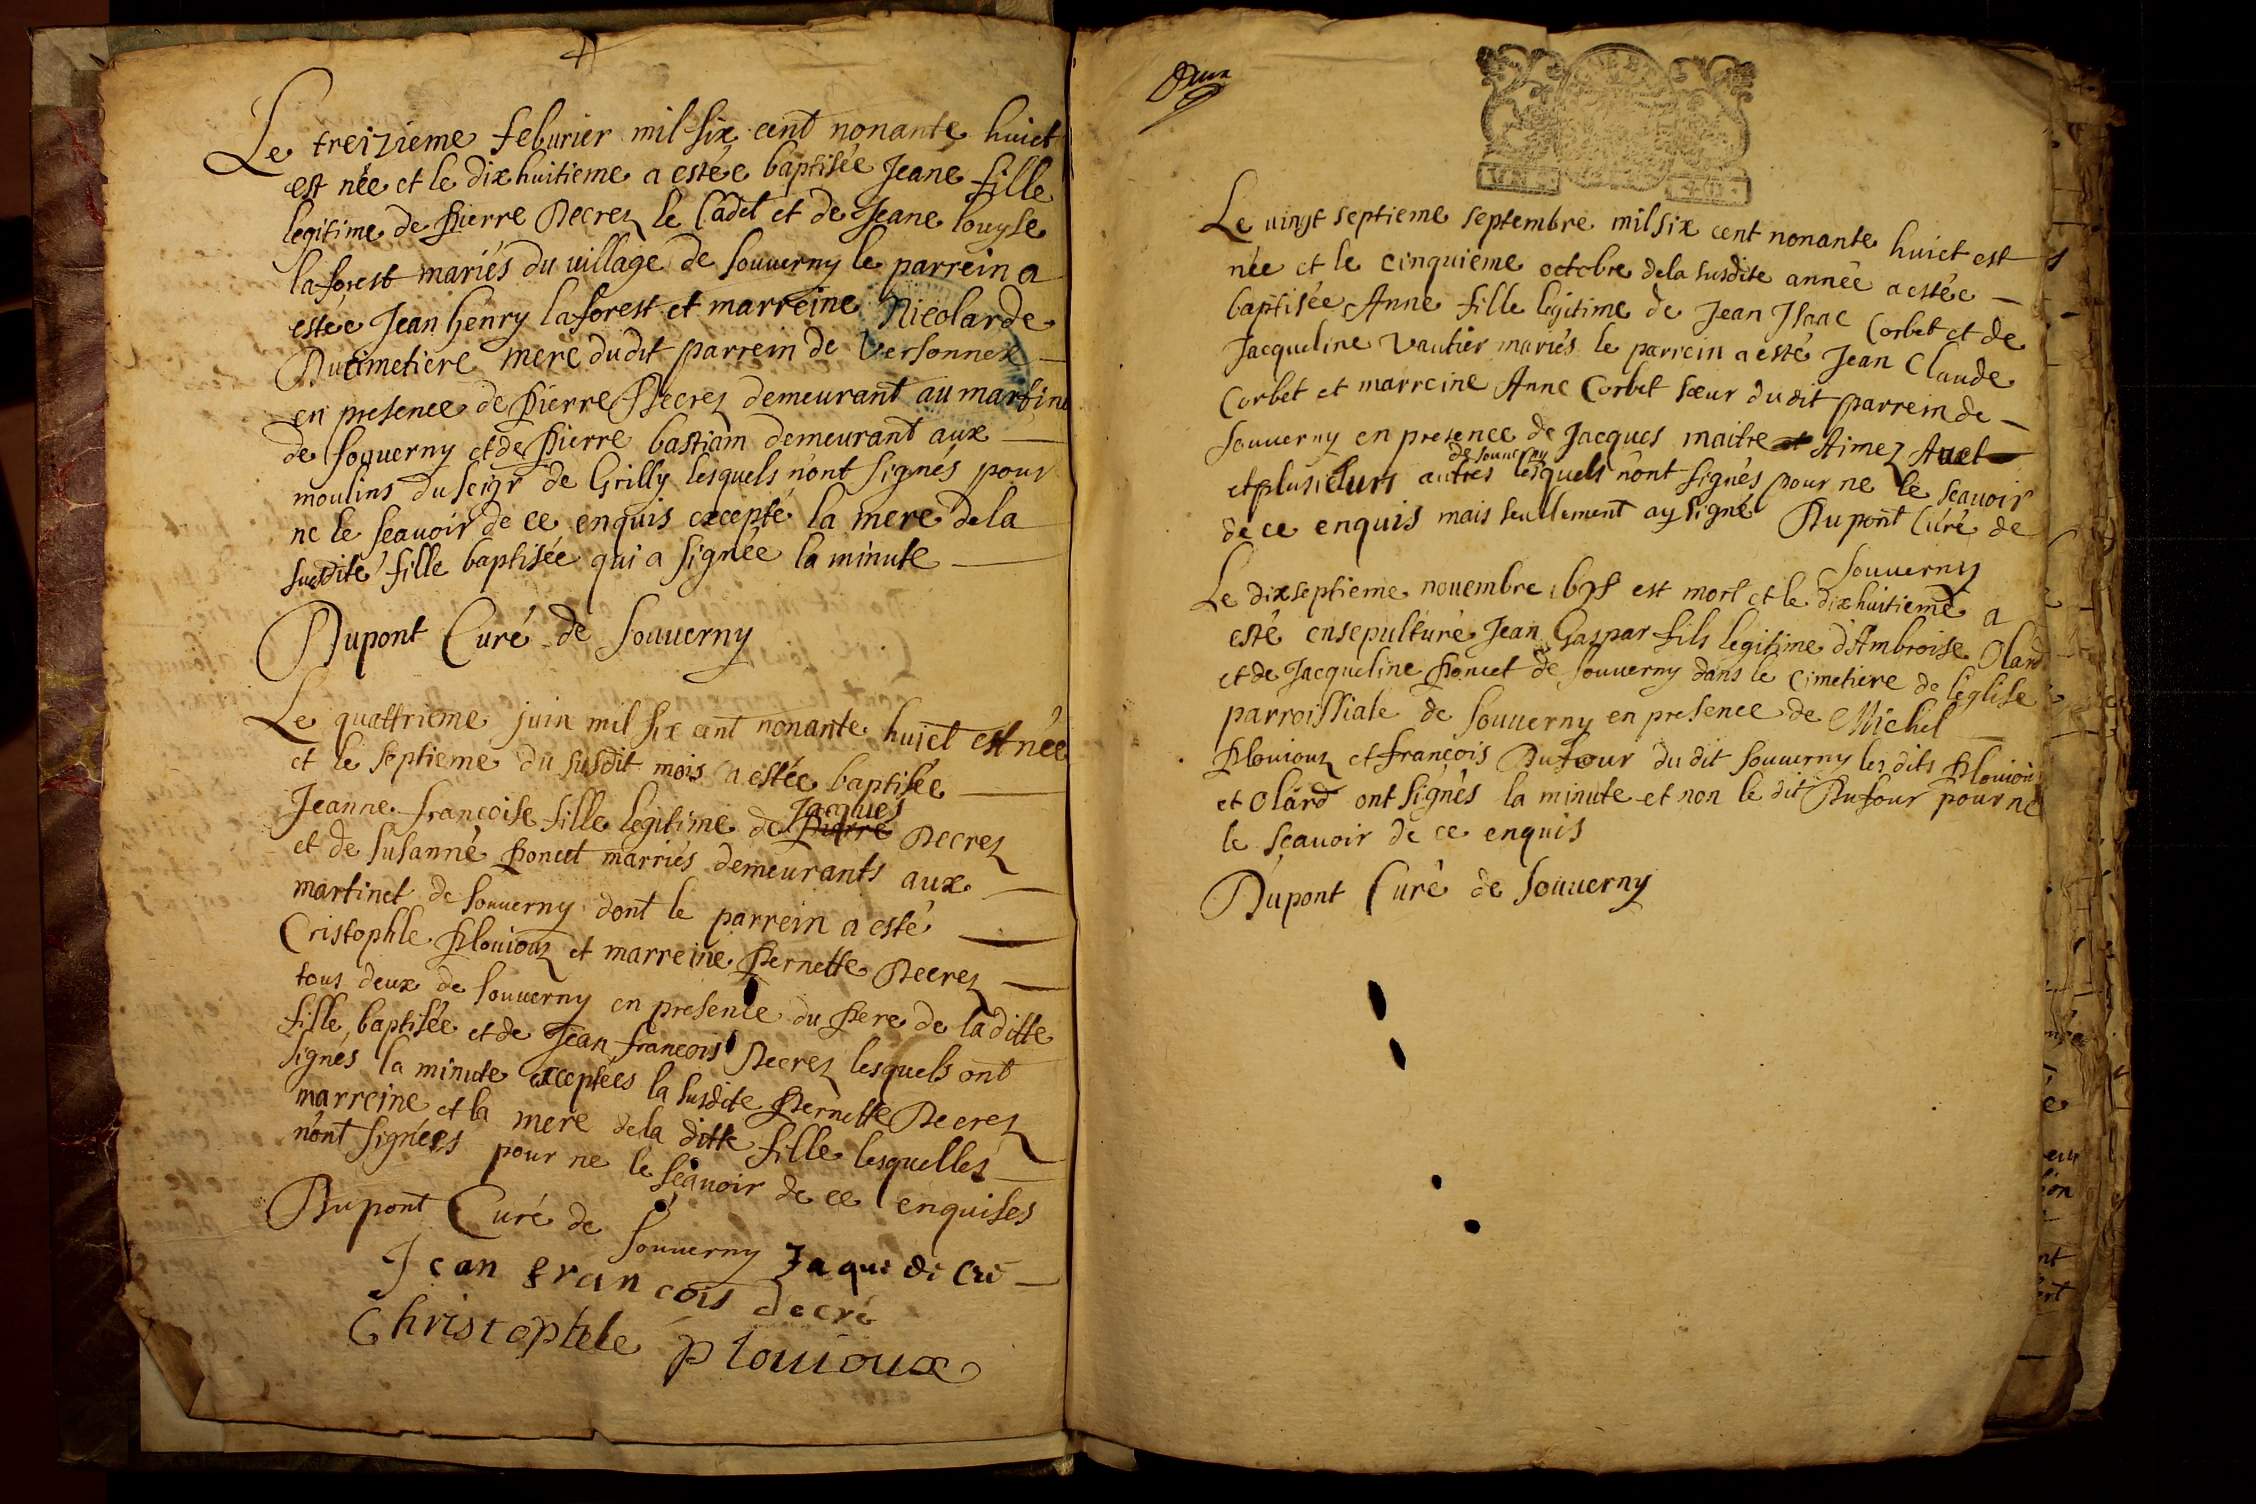 Le treizieme feburier mil six cent nonante huict
est née et le dixhuitieme a estée baptisée Jeane fille
legitime de Pierre Decrez le Cadet et de Jeane louyse
laforest mariés du uillage de Souuerny le parrein a
estée Jean henry laforest et marreine Nicolarde
Ducimetiere mere dudit parrein de Versonnex
en presence de Pierre Decrez demeurant au martine
de Souuerny et de Pierre bastiam demeurant aux
moulins du seigr de Grilly lesquels n'ont signés pour
ne le seauoir de ce enquis excepté la mere de la
susdite fille baptisée qui a signée la minute
Dupont Curé de Souuerny
Le quattrieme juin mil six cent nonante huict est née
et le septieme du susdit mois a estée baptisée
Jeanne francoise fille legitime de Jacques Pierre Decrez
et de Susanne Poncet marriés demeurants aux
martinet de Souuerny dont le parrein a esté
Cristophle Plouiouz et marreine Pernette Decrez
tous deux de Souuerny en presence du Pere de la ditte
fille baptisée et de Jean francois Decrez lesquels ont
signés la minute exceptées la susdite Pernette Decrez
marreine et la mere de la ditte fille lesquelles
n'ont signées pour ne le seauoir de ce enquises
Dupont Curé de Souuerny Jaque de Cré
Jean francois decré
Christophle plouioux
Le uingt septieme septembre mil six cent nonante huict est
née et le cinquieme octobre de la susdite année a estée
baptisée Anne fille legitime de Jean Isaac Corbet et de
Jacqueline Vautier mariés le parrein a esté Jean Claude
Corbet et marreine Anne Corbet sœur dudit parrein de
Souuerny en presence de Jacques maitre et Aimez Auet
de souuerny
et plusieurs autres lesquels n'ont signés pour ne le seauoir
de ce enquis mais seullement ay signé Dupont Curé de
Souuerny
Le dixseptieme nouembre 1698 est mort et le dixhuitieme a
esté ensepulturé Jean Gaspar fils legitime d'Ambroise Olard
et de Jacqueline Poncet de Souuerny dans le cimetiere de l'eglise
parroissiale de Souuerny en presence de Michel
Plouiouz et francois Dufour du dit Souuerny les dits Plouiou
et Olard ont signés la minute et non le dit Dufour pour ne
le seauoir de ce enquis
Dupont Curé de Souuerny